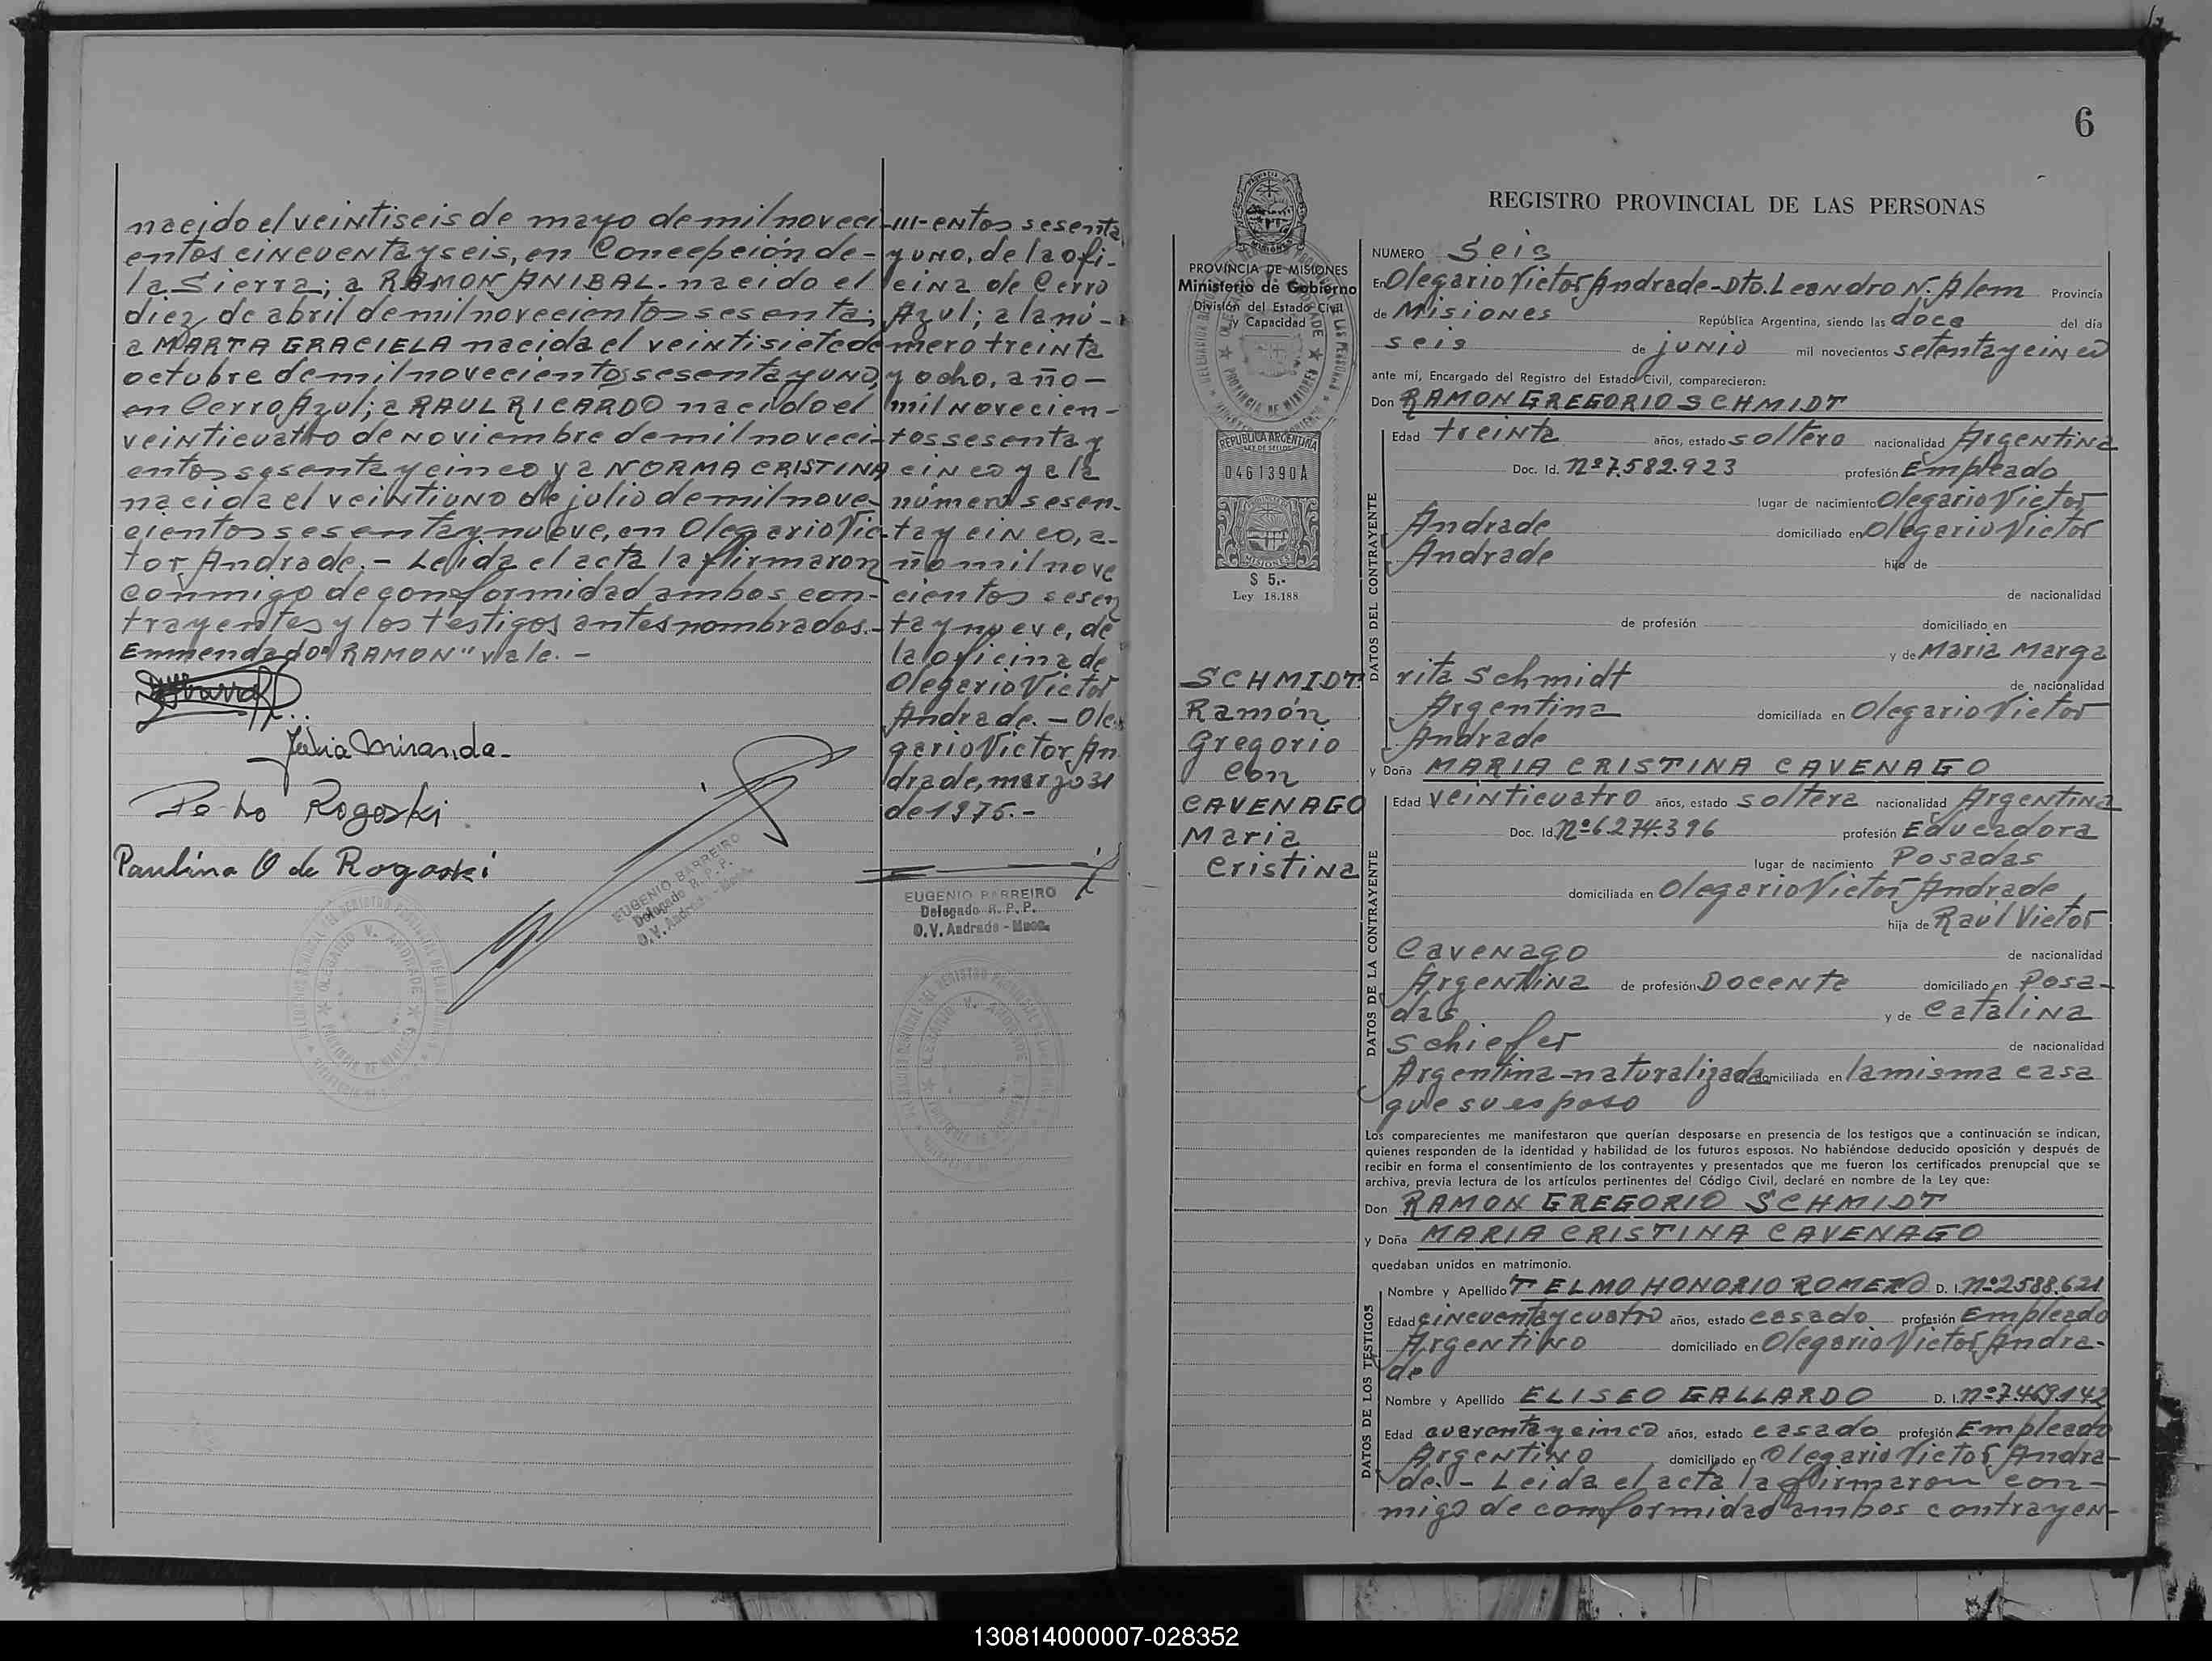 nacido el veintiseis de mayo de mil noveci-
entos cincuenta y seis, en Concepción de-
la Sierra; a RAMON ANIBAL - nacido el
diez de abril de mil novecientos sesenta;
a MARTA GRACIELA nacida el veintisiete de
octubre de mil novecientos sesenta y uno,
en Cerro Azul; a RAUL RICARDO nacido el
veinticuatro de noviembre de mil noveci-
entos sesenta y cinco y a NORMA CRISTINA
nacida el veintiuno de julio de mil nove-
cientos sesenta y nueve, en Olegario Vic-
tor Andrade. - Leída el acta la firmaron
conmigo de conformidad ambos con-
trayentes y los testigos antes nombrados.-
Enmendado "RAMON" vale. -
Julia Miranda-
Pedro Rogoski
Paulina O de Rogoski
EUGENIO BARREIRO
Delegado R. P. P.
O. V. Andrade - Mnes.
-III- entos sesenta
y uno, de la ofi-
cina de Cerro
Azul; a la nú-
mero treinta
y ocho, año -
mil novecien-
tos sesenta y
cinco y a la
número sesen-
ta y cinco, a-
ño mil nove
cientos sesen
ta y nueve, de
la oficina de
Olegario Victor
Andrade. - Ole
gario Victor An
drade, marzo 31
de 1975. -
EUGENIO BARREIRO
Delegado R. P. P.
O. V. Andrade - Mnes.
6
REGISTRO PROVINCIAL DE LAS PERSONAS
PROVINCIA DE MISIONES
Ministerio de Gobierno
División del Estado Civil
y Capacidad
REPUBLICA ARGENTINA
LEY DE SELLOS
0461390A
MISIONES
$ 5,-
Ley 18.188
SCHMIDT
Ramón
Gregorio
con
CAVENAGO
Maria
Cristina
NUMERO Seis
En Olegario Victor Andrade - Dto. Leandro N. Alem Provincia
de Misiones República Argentina, siendo las doce del día
seis de junio mil novecientos setenta y cinco
ante mí, Encargado del Registro del Estado Civil, comparecieron:
Don RAMON GREGORIO SCHMIDT
DATOS DEL CONTRAYENTE
Edad treinta años, estado soltero nacionalidad Argentina
Doc. Id. Nº 7.582.923 profesión Empleado
lugar de nacimiento Olegario Victor
Andrade domiciliado en Olegario Victor
Andrade hijo de
de nacionalidad
de profesión domiciliado en
y de Maria Marga
rita Schmidt de nacionalidad
Argentina domiciliada en Olegario Victor
Andrade
y Doña MARIA CRISTINA CAVENAGO
DATOS DE LA CONTRAYENTE
Edad veinticuatro años, estado soltera nacionalidad Argentina
Doc. Id. Nº 6.274.396 profesión Educadora
lugar de nacimiento Posadas
domiciliada en Olegario Victor Andrade
hija de Raúl Victor
Cavenago de nacionalidad
Argentina de profesión Docente domiciliado en Posa-
das y de Catalina
Schiefer de nacionalidad
Argentina - naturalizada domiciliada en la misma casa
que su esposo
Los comparecientes me manifestaron que querían desposarse en presencia de los testigos que a continuación se indican,
quienes responden de la identidad y habilidad de los futuros esposos. No habiéndose deducido oposición y después de
recibir en forma el consentimiento de los contrayentes y presentados que me fueron los certificados prenupcial que se
archiva, previa lectura de los artículos pertinentes del Código Civil, declaré en nombre de la Ley que:
Don RAMON GREGORIO SCHMIDT
y Doña MARIA CRISTINA CAVENAGO
quedaban unidos en matrimonio.
DATOS DE LOS TESTIGOS
Nombre y Apellido TELMO HONORIO ROMERO D. I. Nº 2588.621
Edad cincuenta y cuatro años, estado casado profesión Empleado
Argentino domiciliado en Olegario Victor Andra-
de
Nombre y Apellido ELISEO GALLARDO D. I. Nº 7.469.142
Edad cuarenta y cinco años, estado casado profesión Empleado
Argentino domiciliado en Olegario Victor Andra-
de. - Leida el acta la firmaron con-
migo de conformidad ambos contrayen-
130814000007-028352